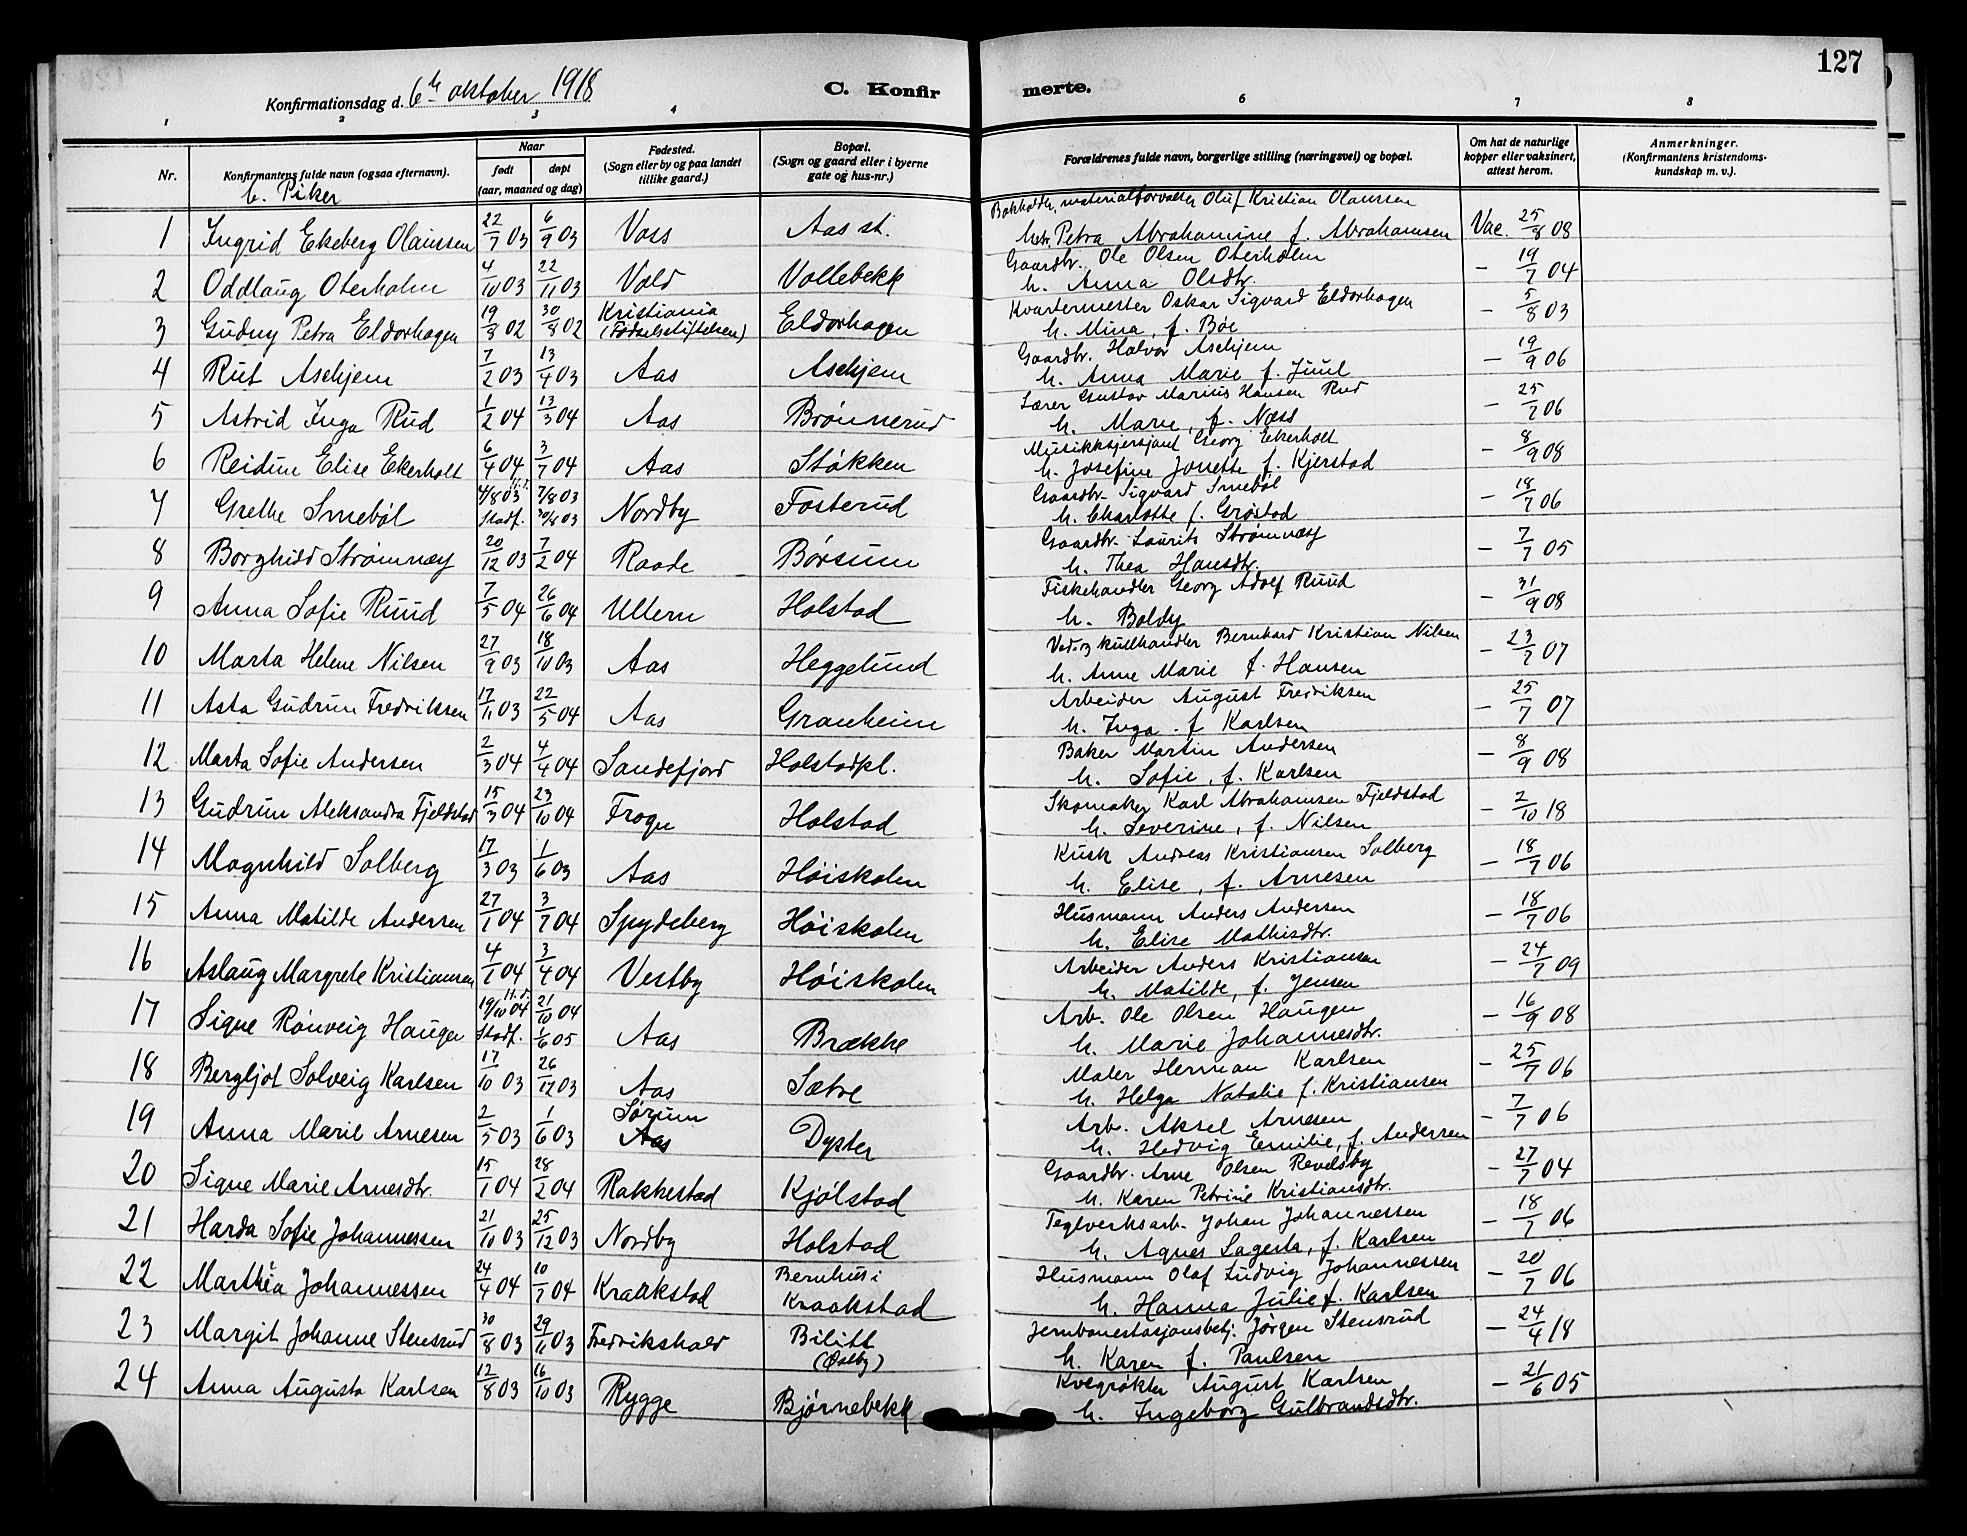 127
Konfirmationsdag d. 6te oktober 1918
C. Konfirmerte.
1 2 3 4 6 7 8
Nr.
Konfirmantens fulde navn (ogsaa efternavn).
Naar
født døpt
(aar, maaned og dag)
Fødested.
(Sogn eller by og paa landet
tillike gaard.)
Bopæl.
(Sogn og gaard eller i byerne
gate og hus-nr.)
Forældrenes fulde navn, borgerlige stilling (næringsvei) og bopæl.
Om hat de naturlige
kopper eller vaksinert,
attest herom.
Anmerkninger.
(Konfirmantens kristendoms-
kundskap m. v.).
b. Piker
Bokholder, materialforvalter Oluf Kristian Olaussen
1 Ingrid Ekeberg Olaussen 22/7 03 6/9 03 Voss Aas st. h. Petra Abrahamine f. Abrahamsen Vac. 25/8 08
Gaardbr. Ole Olsen Oterholm
2 Oddlaug Oterholm 4/10 03 22/11 03 Vold Vollebekk h. Anna Olsdtr. – 19/7 04
Kristiania Kvartermester Oskar Sigvard Eldorhagen
3 Gudny Petra Eldorhagen 19/8 02 30/8 02 (Fødselsstiftelsen) Eldorhagen h. Mina, f. Bøe – 5/8 03
Gaardbr. Halvor Aschjem
4 Rut Aschjem 7/2 03 13/4 03 Aas Aschjem h. Anna Marie f. Juul – 19/9 06
Lærer Gustav Marius Hansen Rud
5 Astrid Inga Rud 1/2 04 13/3 04 Aas Brønnerud h. Marie, f. Næss – 25/7 06
Musikksersjant Georg Ekerholt
6 Reidun Elise Ekerholt 6/4 04 3/7 04 Aas Støkken h. Josefine Jonette f. Kjerstad – 8/9 08
4/8 03 H.d. 7/8 03 Gaardbr. Sigvard Smebøl
7 Grethe Smebøl Stadf. 30/8 03 Nordby Fosterud h. Charlotte f. Grøstad – 18/7 06
Gaardbr. Laurits Strømnæs
8 Borghild Strømnæs 20/12 03 7/2 04 Raade Børsum h. Thea Hansdtr. – 7/7 05
Fiskehandler Georg Adolf Ruud
9 Anna Sofie Ruud 7/5 04 26/6 04 Ullern Holstad h. Boldy – 31/9 08
Ved- og kulhandler Bernhard Kristian Nilsen
10 Marta Helene Nilsen 27/9 03 18/10 03 Aas Heggelund h. Anne Marie f. Hansen – 23/7 07
Arbeider August Fredriksen
11 Asta Gudrun Fredriksen 17/11 03 22/5 04 Aas Granheim h. Inga f. Karlsen – 25/7 07
Baker Martin Andersen
12 Marta Sofie Andersen 2/3 04 4/4 04 Sandefjord Holstadpl. h. Sofie, f. Karlsen – 8/9 08
Skomaker Karl Abrahamsen Fjeldstad
13 Gudrun Aleksandra Fjeldstad 15/3 04 23/10 04 Frogn Holstad h. Severine, f. Nilsen – 2/10 18
Kusk Andreas Kristiansen Solberg
14 Magnhild Solberg 17/3 03 1/6 03 Aas Høiskolen h. Elise, f. Arnesen – 18/7 06
Husmann Anders Andersen
15 Anna Matilde Andersen 27/1 04 3/7 04 Spydeberg Høiskolen h. Elise Mathisdtr. – 18/7 06
Arbeider Anders Kristiansen
16 Aslaug Margrete Kristiansen 4/1 04 3/4 04 Vestby Høiskolen h. Matilde, f. Jensen – 24/7 09
19/10 04 H.d. 21/10 04 Arb. Ole Olsen Haugen
17 Signe Rønveig Haugen Stadf. 1/6 05 Aas Brække h. Marie Johannesdtr. – 16/9 08
Maler Herman Karlsen
18 Bergljot Solveig Karlsen 17/10 03 26/12 03 Aas Sætre h. Helga Natalie f. Kristiansen – 25/7 06
Sørum Arb. Aksel Arnesen
19 Anna Marie Arnesen 2/5 03 1/6 03 Aas Dyster h. Hedvig Emilie, f. Andersen – 7/7 06
Gaardbr. Arne Olsen Revelsby
20 Signe Marie Arnesdtr. 15/1 04 28/2 04 Rakkestad Kjølstad h. Karen Petrine Kristiansdtr. – 27/7 04
Teglverksarb. Johan Johannessen
21 Harda Sofie Johannessen 21/10 03 25/12 03 Nordby Holstad h. Agnes Lagerta, f. Karlsen – 18/7 06
Bernhus i Husmann Olaf Ludvig Johannessen
22 Marthea Johannessen 24/4 04 10/7 04 Kraakstad Kraakstad h. Hanna Julie f. Karlsen – 20/7 06
Bilitt Jernbanestasjonsbetj. Jørgen Stensrud
23 Margit Johanne Stensrud 30/8 03 29/11 03 Fredrikshald (Østby) h. Karen f. Paulsen – 24/4 18
Kvegrøkter August Karlsen
24 Anna Augusta Karlsen 12/8 03 16/10 03 Rygge Bjørnebekk h. Ingeborg Gulbrandsdtr. – 21/6 05